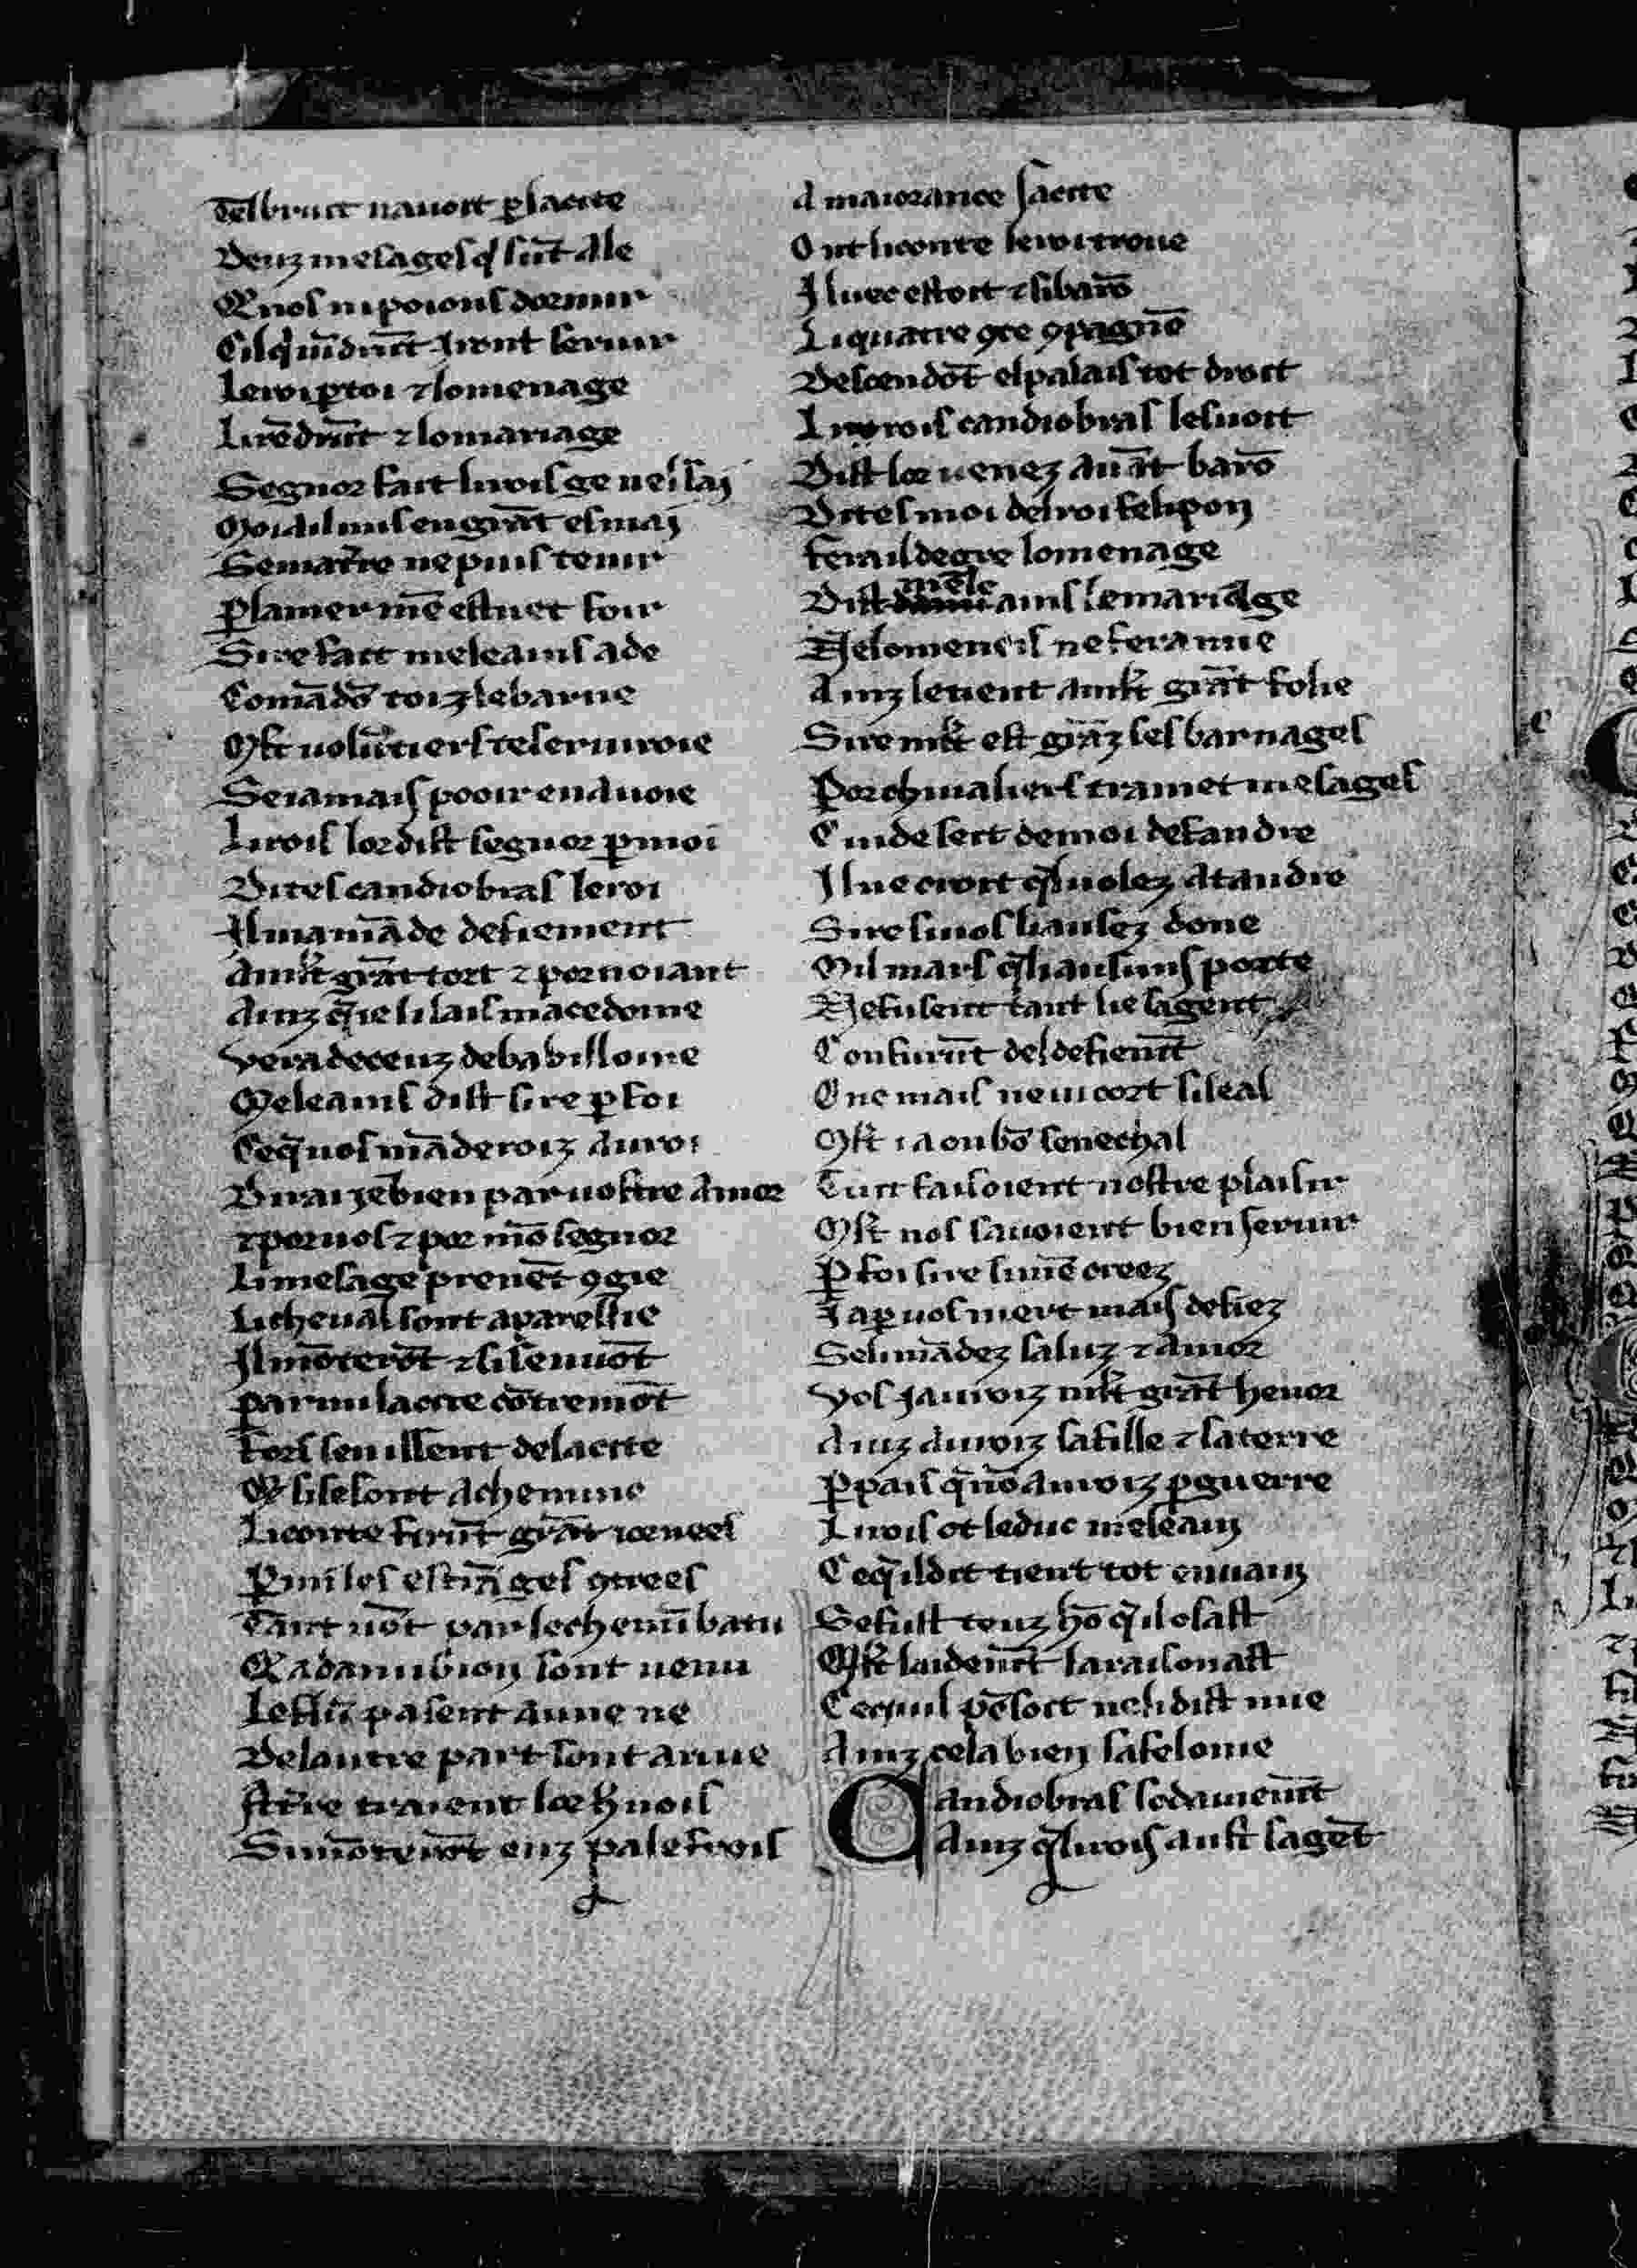 Tel bruit nauoit p la cite
Deuz mesages q sūt ale
Q uos ni poions dormir
Cil q uīdrūt uront seruir
Le roi p toi ⁊ lomenage
Li rēdrūt ⁊ lo mariage
Segnor fait li rois ge nel sai
Moi ail mis en grāt esmai
Se ma tr̄re ne puis tenir
P la mer mē estuet foir
Sire fait meleains ade
Comādō toiz le barne
Mlt uolūtiers te seruiroie
Se iamais pooir en auoie
Li rois lor dist segnor p moi
Dites candiobras le roi
Il ma māde defiement
A mlt grāt tort ⁊ por noiant
Ainz q̄ ie li lais macedoine
Vera deceuz de babilloine
Meleains dist sire p foi
Ce q̄ uos māderoiz au roi
Dirai ie bien par uostre amor
⁊ por uos ⁊ por mō segnor
Li mesage prenēt ꝯgie
Li cheual sont aparellie
Il mōterōt ⁊ si sen uōt
Parmi la cite cōtremōt
Fors sen issent de la cite
Q si se sont achemine
Li conte firūt grāt iorneel
P mi les estrāges ꝯtrees
Tant uōt par le chemī batu
Q a danubion sont uenu
Le flū pasent a une ne
De lautre part sont ariue
A tr̄re traient lor hnois
Si mōterōt enz palefrois
A maiorance sa cite
Ont li conte le roi troue
Iluec estoit ⁊ si barō
Li quatre ꝯte ꝯpagnō
Descendōt el palais tot droit
Li rois candiobras les uoit
Dist lor uenez auāt barō
Dites moi del roi felipon
Fera il de gre lomenage
Dist mele ains le mariage
Ne lomeneis ne fera mie
Ainz le tient a mlt grāt folie
Sire mlt est grāz ses barnages
Por ch'inaliers tramet mesages
C inde sert de moi defandre
Il ne croit q̄l uolez atandre
Sire si uos li ausez done
Mil mars q̄ li ansuns porte
Ne fusent tant lie sa gent
Con furūt del defiemt
Onc mais ne ui cort si leal
Mlt i a on bō senechal
Tuit faisoient nostre plaisir
Mlt nos sauoient bien seruir
P foi sire si mē creez
Ia p uos niert mais defiez
Se li mādez saluz ⁊ amor
Vos i auroiz mlt grāt henor
Ainz auroiz sa fille ⁊ sa terre
P pais q̄ nō auroiz p guerre
Li rois ot le duc meleainz
Ce q̄ il dit tient tot en uainz
Se fust teuz hō q̄ il osast
Mlt laidemt la raisonast
Ce quil pēsoit ne li dist mie
Ainz cela bien sa felonie
Candiobras sodainemt
Ainz q̄ li rois aust sa gēt